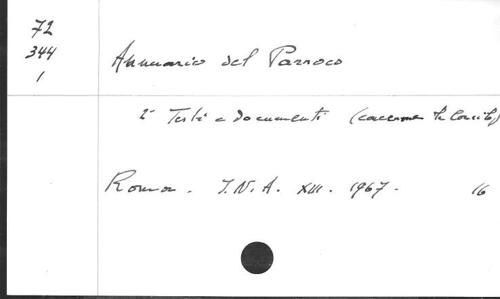 72
344
1
Annuario del Parroco
2° Testi e documenti
Roma. I.N.A. XIII. 1967. 16